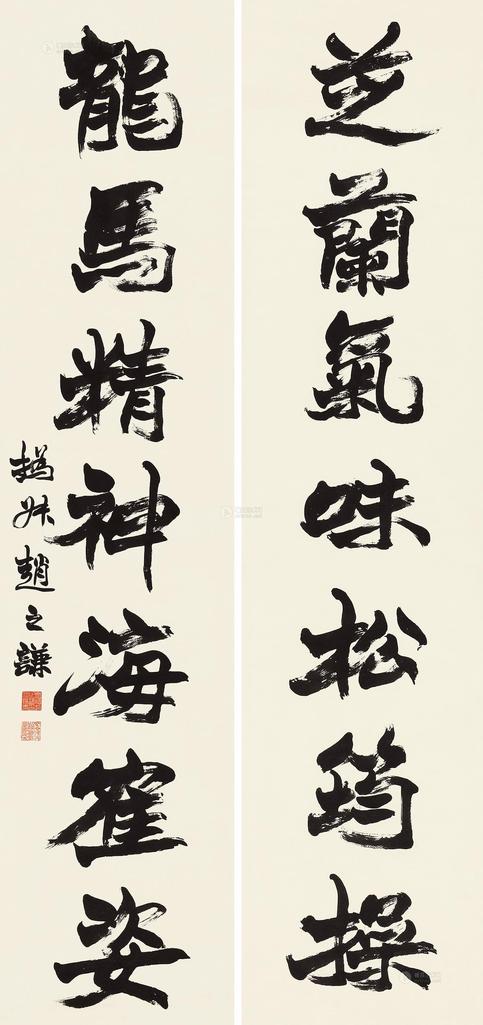 芝蘭氣味松筠操
龍馬精神海雀姿
撝叔趙之謙